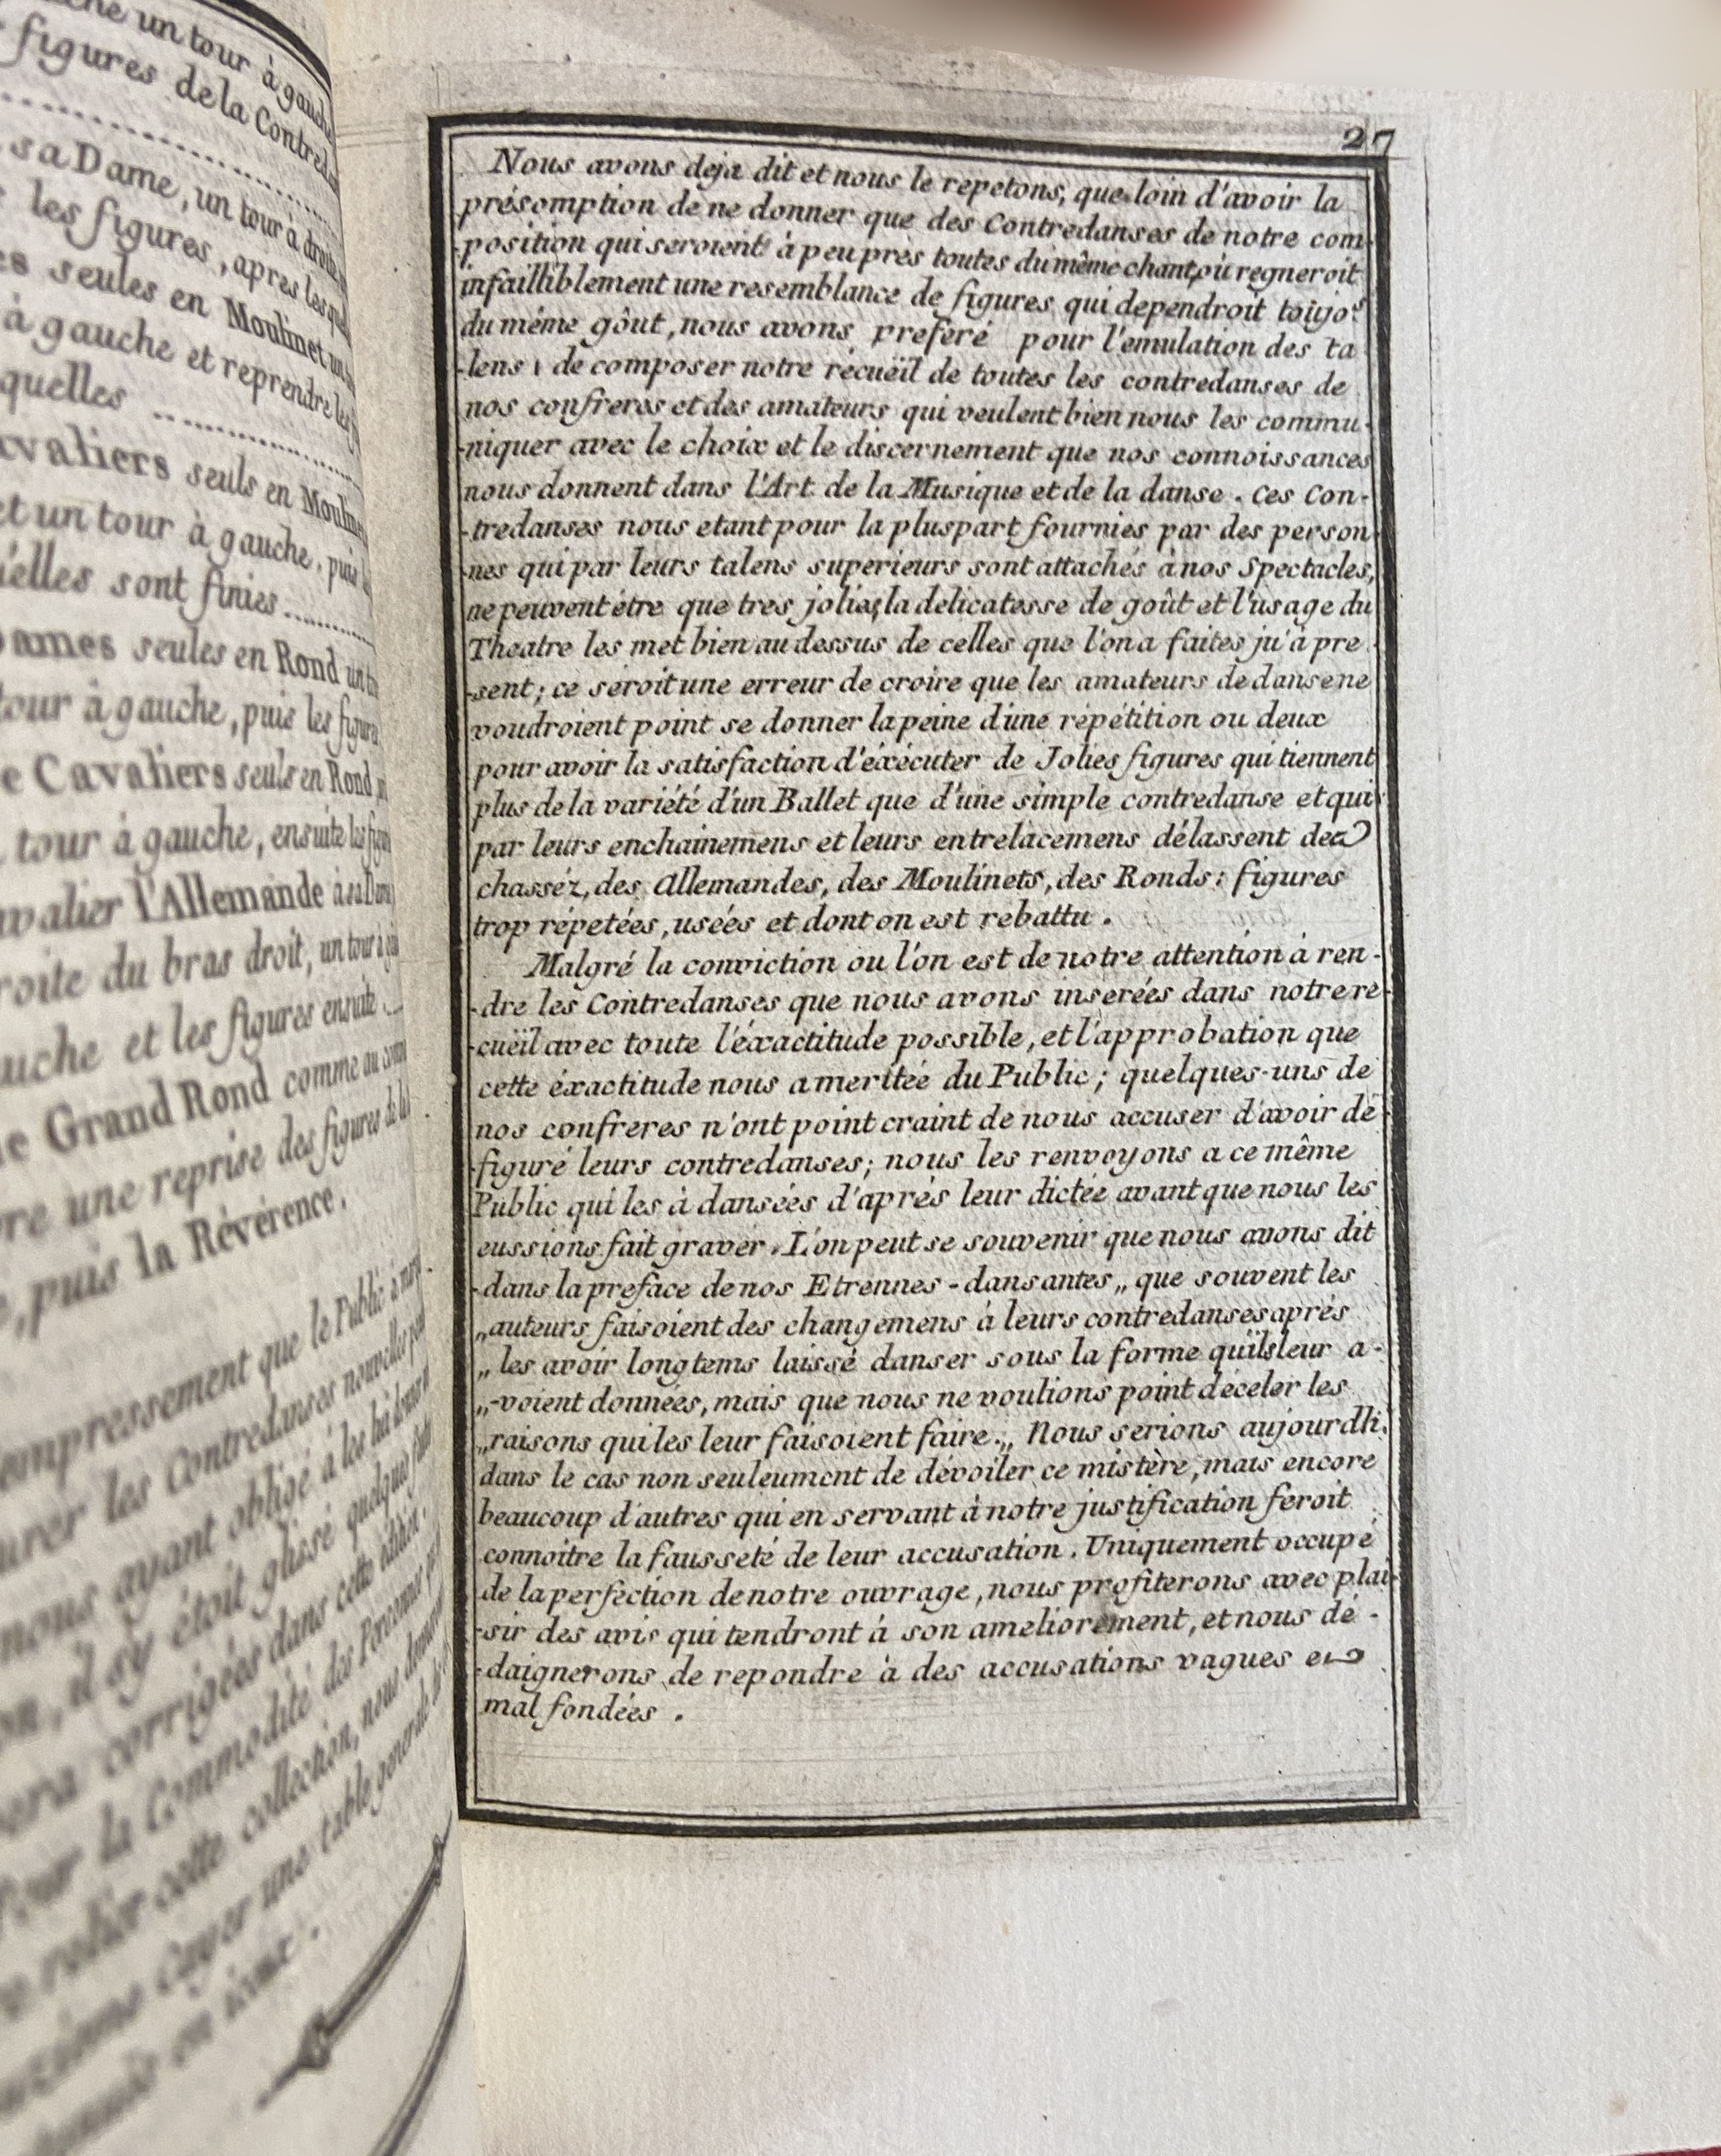 un tour à gauche
figures de la Contred
sa Dame, un tour à droite
les figures, apres lesquel
seules en Moulinet un
à gauche et reprendre les
quelles
Cavaliers seuls en Moulinet
et un tour à gauche, puis
elles sont finies
Dames seules en Rond un
tour à gauche, puis les figures
Cavaliers seuls en Rond
tour à gauche, ensuite les figures
l'Allemande à sa Dame
droite du bras droit, un tour à
et les figures ensuite
Grand Rond comme au
une reprise des figures de la
puis la Révérence.
empressement que le Public à
les Contredanses nouvelles
nous ayant obligé à les
il s'y étoit glissé quelques
corrigées dans cette édition.
Pour la Commodité des Personnes
relier cette collection, nous
une table generale
27
Nous avons deja dit et nous le repetons, que loin d'avoir la
présomption de ne donner que des Contredanses de notre com-
-position qui seroient à peu près toutes du même chant, où regneroit
infailliblement une resemblance de figures qui dependroit toujo.rs
du méme gôut, nous avons preferé pour l'emulation des ta
-lens, de composer notre récuëil de toutes les contredanses de
nos confreres et des amateurs qui veulent bien nous les commu-
-niquer avec le choix et le discernement que nos connoissances
nous donnent dans l'Art de la Musique et de la danse. Ces Con-
-tredanses nous etant pour la pluspart fournies par des person-
-nes qui par leurs talens superieurs sont attachés à nos Spectacles,
ne peuvent être que tres jolies, la delicatesse de goût et l'usage du
Theatre les met bien au dessus de celles que l'on a faites ju'à pre
-sent; ce seroit une erreur de croire que les amateurs de danse ne
voudroient point se donner la peine d'une répétition ou deux
pour avoir la satisfaction d'éxécuter de Jolies figures qui tiennent
plus de la variété d'un Ballet que d'une simple contredanse et qui
par leurs enchainemens et leurs entrelacemens délassent des
chasséz, des Allemandes, des Moulinets, des Ronds: figures
trop répetées, usées et dont on est rebattu.
Malgré la conviction ou l'on est de notre attention à ren-
-dre les Contredanses que nous avons inserées dans notre re-
-cuëil avec toute l'éxactitude possible, et l'approbation que
cette éxactitude nous a meritée du Public; quelques-uns de
nos confreres n'ont point craint de nous accuser d'avoir dé-
-figuré leurs contredanses; nous les renvoyons a ce même
Public qui les à dansées d'aprés leur dictée avant que nous les
eussions fait graver. L'on peut se souvenir que nous avons dit
-dans la preface de nos Etrennes-dansantes „ que souvent les
„auteurs faisoient des changemens à leurs contredanses aprés
„les avoir longtems laissé danser sous la forme qu'ils leur a-
„-voient données, mais que nous ne voulions point déceler les
„raisons qui les leur faisoient faire.„ Nous serions aujourdh.
dans le cas non seuleument de dévoiler ce mistère, mais encore
beaucoup d'autres qui en servant à notre justification feroit
connoitre la fausseté de leur accusation. Uniquement occupé
de la perfection de notre ouvrage, nous profiterons avec plai-
-sir des avis qui tendront à son ameliorement, et nous dé-
-daignerons de repondre à des accusations vagues et
mal fondées.